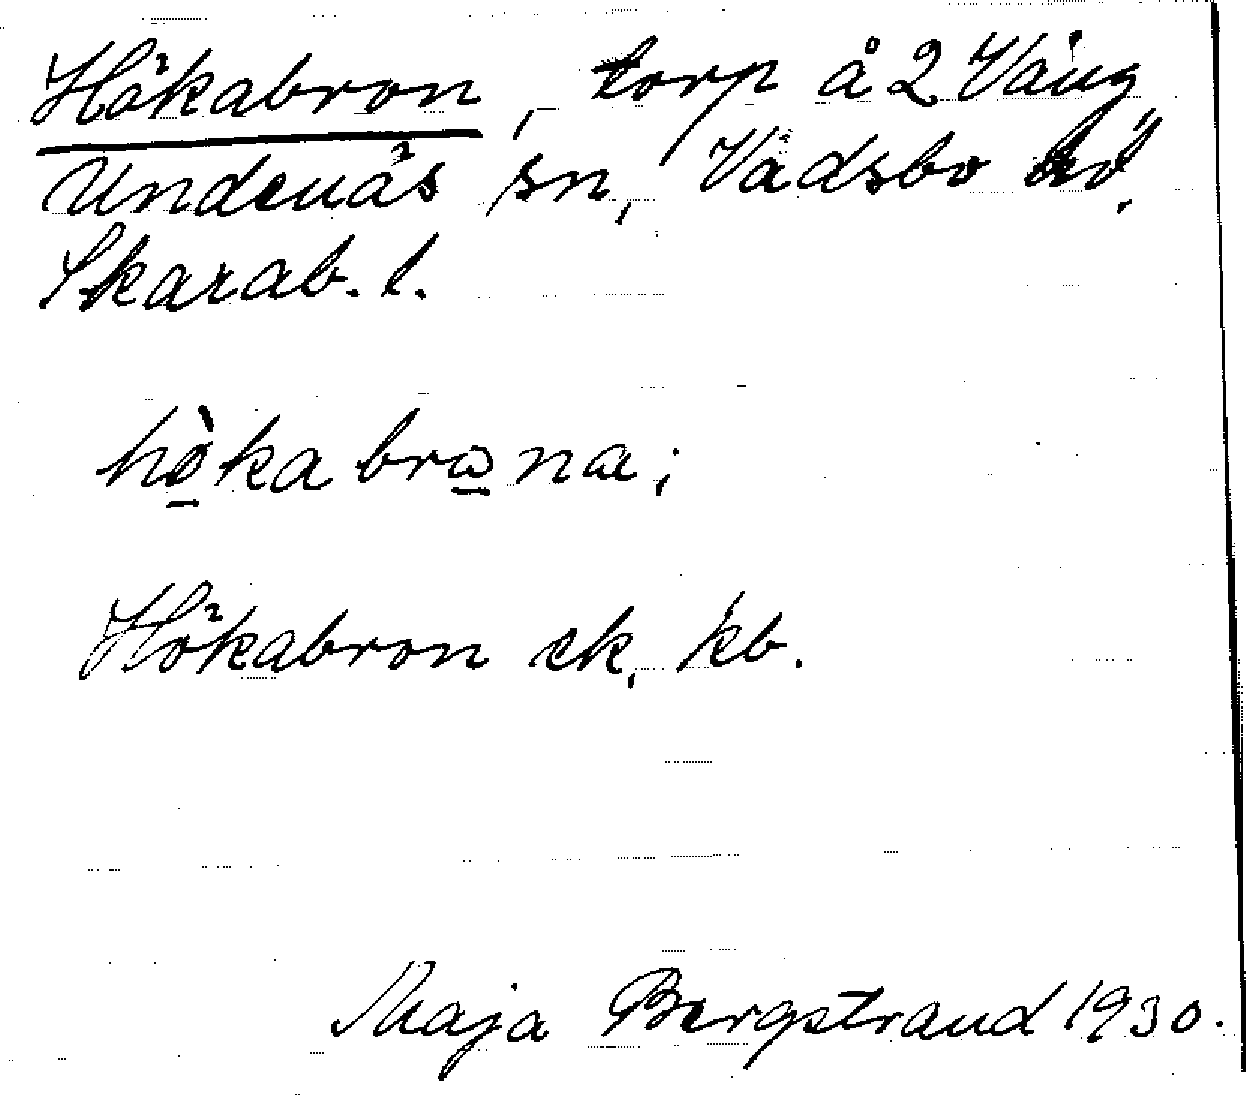 Hökabron, torp å 2 Vång,
Undenäs sn, Vadsbo hd,
Skarab. l.
hø̀ka brωna;
Hökabron ek, kb.
Maja Bergstrand 1930.